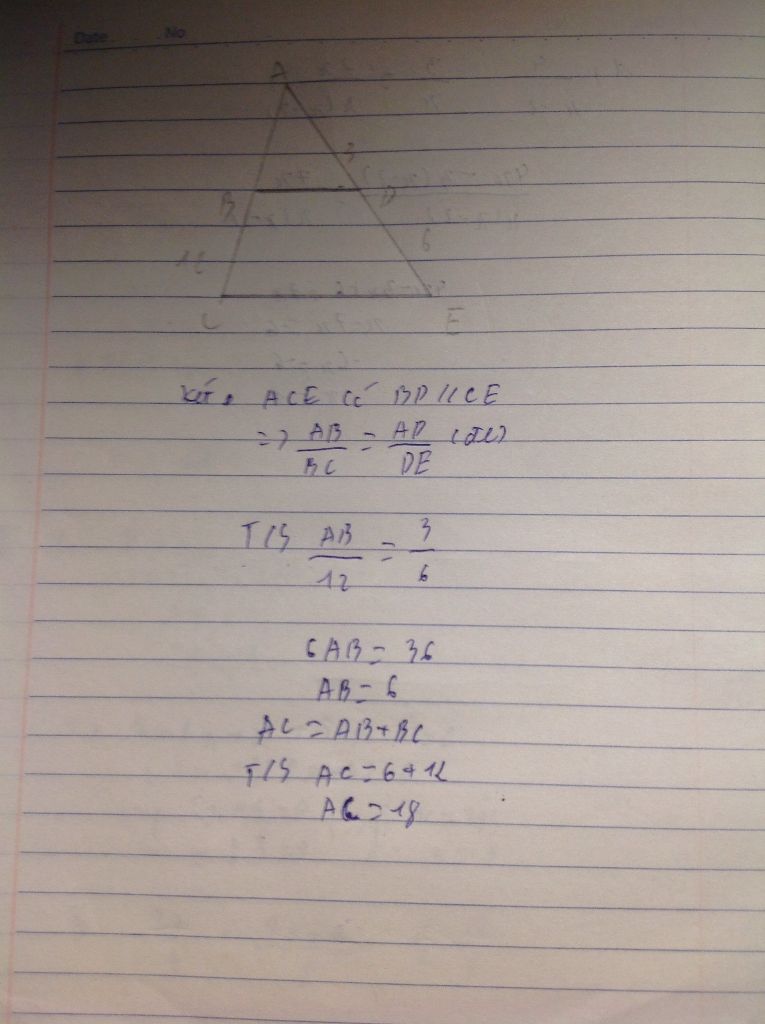 Date No
A
3
B D
12 6
C E
Xét ACE Có BD // CE
=> AB/BC = AD/DE (ĐL)
T/S AB/12 = 3/6
6AB = 36
AB = 6
AC = AB + BC
T/S AC = 6 + 12
AC = 18